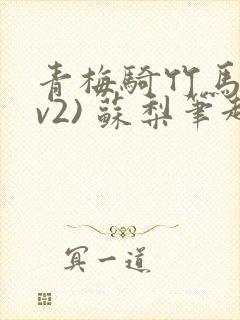 青梅騎竹馬
v2) 蘇梨筆趣
冥一道